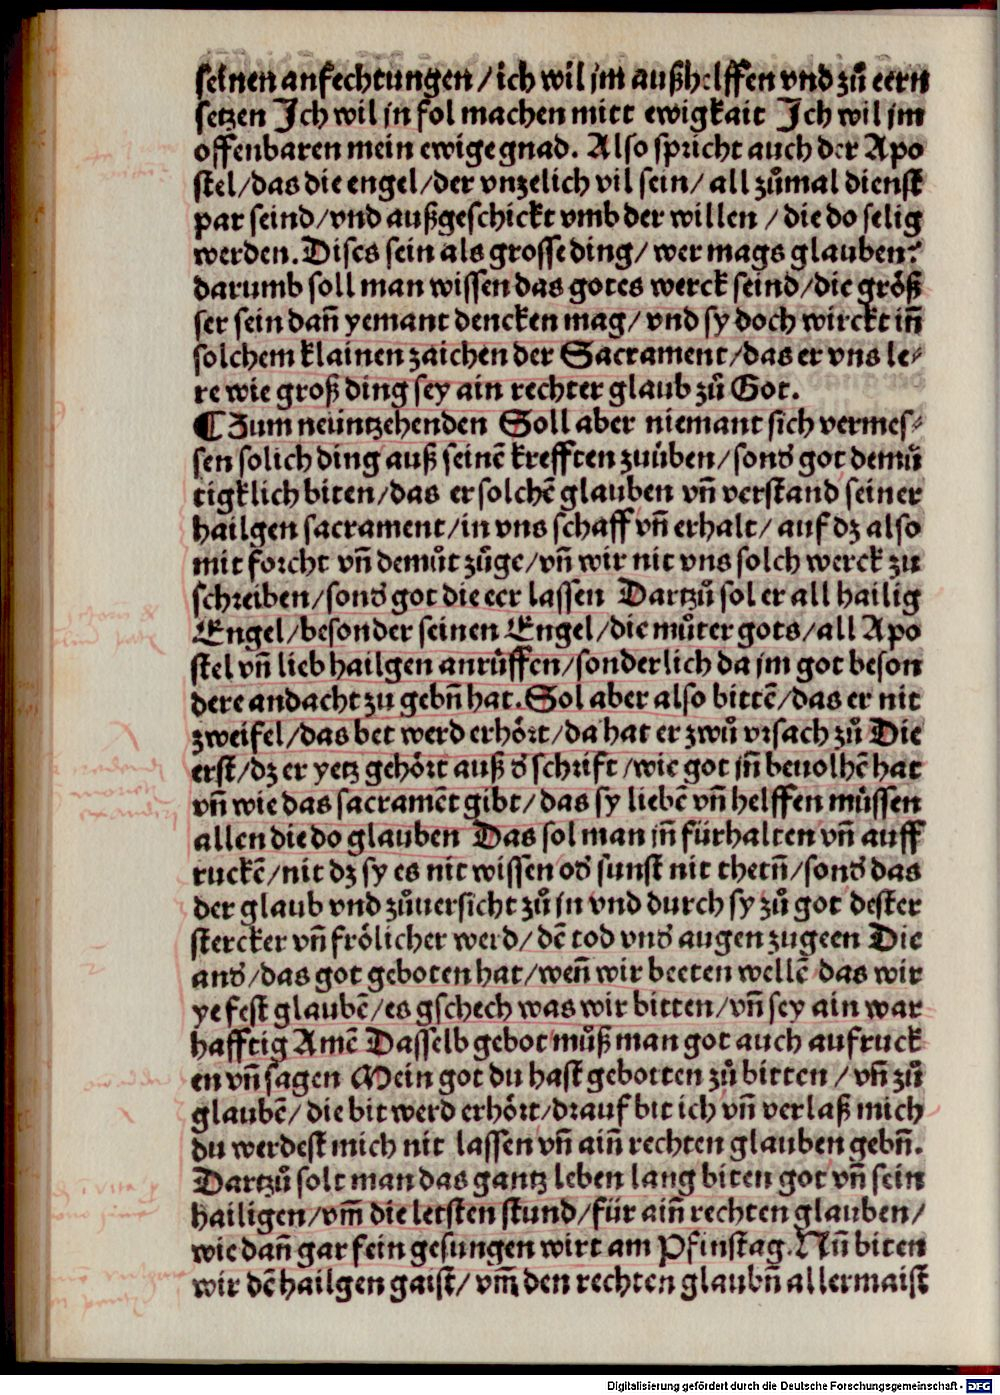 seinen anfechtungen/ich wil jm außhelffen vnd zů eern
setzen Ich wil jn fol machen mitt ewigkait Ich wil jm
offenbaren mein ewige gnad. Also spricht auch der Apo
stel/das die engel/der vnzelich vil sein/ all zůmal dienst
par seind/vnd außgeschickt vmb der willen /die do selig
werden. Dises sein als grosse ding/ wer mags glauben?
darumb soll man wissen das gotes werck seind/die größ
ser sein dañ yemant dencken mag/ vnd sy doch wirckt iñ
solchem klainen zaichen der Sacrament/das er vns le⸗
re wie groß ding sey ain rechter glaub zů Got.
¶ Zum neüntzehenden Soll aber niemant sich vermes⸗
sen solich ding auß seinē krefften zuüben/sonđ got demů
tigklich biten/das er solchē glauben vñ verstand seiner
hailgen sacrament/in vns schaff vñ erhalt/ auf dz also
mit forcht vñ demůt zůge/vñ wir nit vns solch werck zu
schreiben/sonđ got die eer lassen Dartzů sol er all hailig
Engel/besonder seinen Engel/die můter gots/all Apo
stel vñ lieb hailgen anrüffen/sonderlich da jm got beson
dere andacht zu gebñ hat. Sol aber also bittē/das er nit
zweifel/das bet werd erhört/da hat er zwů vrsach zů Die
erst/dz er yetz gehört auß đ schrift /wie got jñ beuolhē hat
vñ wie das sacramēt gibt/das sy liebē vñ helffen müssen
allen die do glauben Das sol man jñ fürhalten vñ auff
ruckē/nit dz sy es nit wissen ođ sunst nit thetñ/sonđ das
der glaub vnd zůuersicht zů jn vnd durch sy zů got dester
stercker vñ frölicher werd/dē tod vnđ augen zugeen Die
anđ/das got geboten hat/weñ wir beeten wellē das wir
ye fest glaubē/es gschech was wir bitten/vñ sey ain war
hafftig Amē Dasselb gebot můß man got auch aufruck
en vñ sagen Mein got du hast gebotten zů bitten / vñ zů
glaubē/ die bit werd erhört/drauf bit ich vñ verlaß mich
du werdest mich nit lassen vñ aiñ rechten glauben gebñ.
Dartzů solt man das gantz leben lang biten got vñ sein
hailigen/vm̃ die letsten stund/für aiñ rechten glauben/
wie dañ gar fein gesungen wirt am Pfinstag. Nũ biten
wir dē hailgen gaist/ vm̃ den rechten glaubñ allermaist
Digitalisierung gefördert durch die Deutsche Forschungsgemeinschaft - DFG